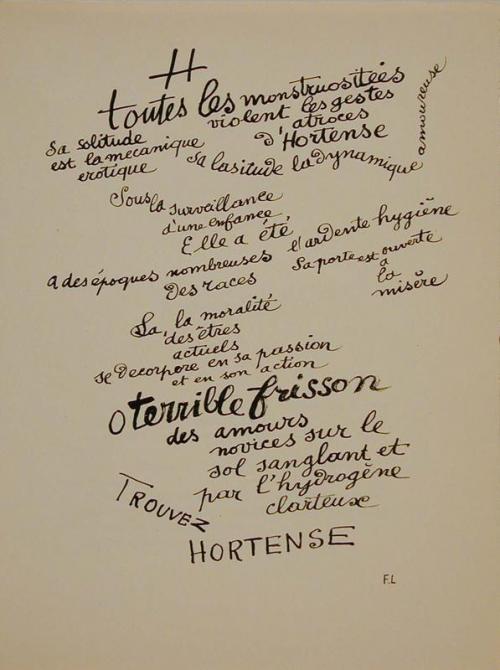 H
toutes les monstruositées
violent les gestes
atroces
d'Hortense
Sa solitude
est la mecanique
erotique
sa lasitude la dynamique
amoureuse
Sous la surveillance
d'une enfance
Elle a été,
a des époques nombreuses
l'ardente hygiène
des races
Sa porte est ouverte
a
la
misère
La, la moralité
des êtres
actuels
se decorpore en sa passion
et en son action
O terrible frisson
des amours
novices sur le
sol sanglant et
par l'hydrogène
clarteux
TROUVEZ
HORTENSE
F.L